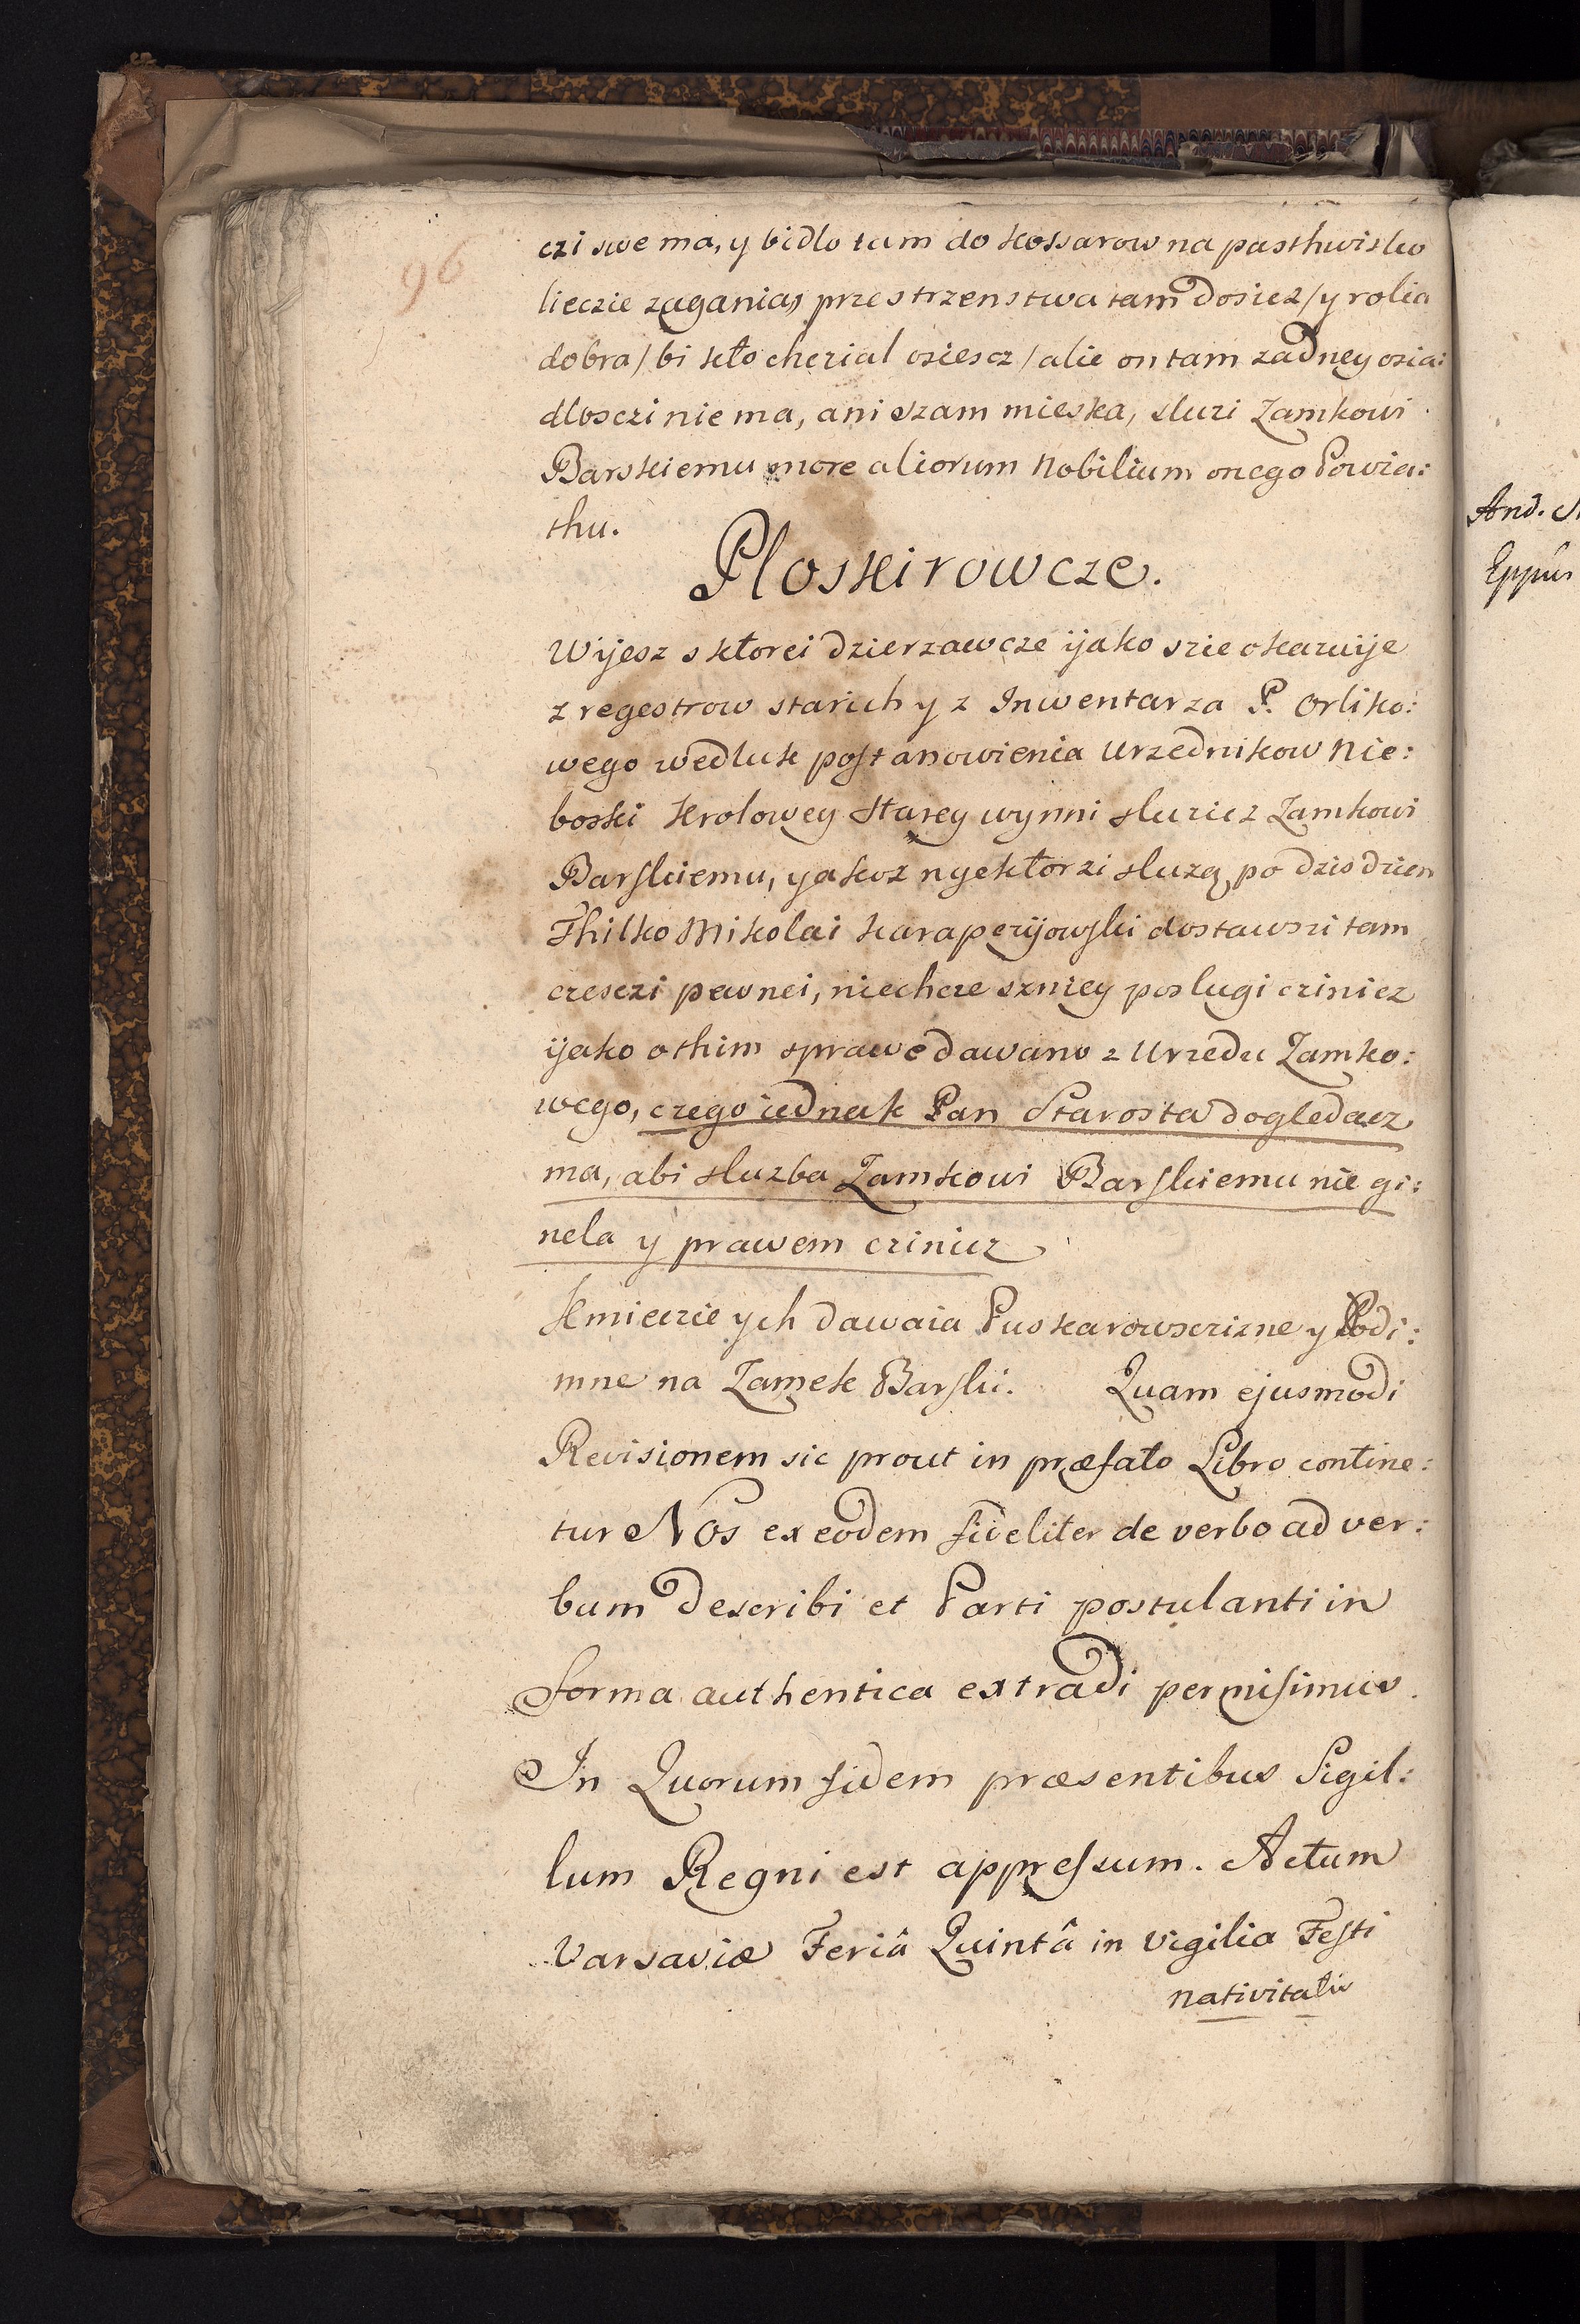 96
czi swe ma, y bidlo tam do kossarow na pasthwisko
lieczie zagania, przestrzenstwa tam dosicz / y rolia
dobra / bi kto chczial osiescz / alie on tam zadney osia:
dlosczi nie ma, ani szam mieska, sluzi Zamkowi
Barskiemu more aliorum Nobilium onego Powia:
thu.
Ploskirowcze.
Wijesz s ktorei dzierzawcze ijako szie okazuije
z regestrow starich y z Inwentarza P. Orliko:
wego wedluk postanowienia Urzednikow Nie:
boski Krolowey Starey wynni sluzicz Zamkowi
Barskiemu, yakoz nyektorzi sluzą po dzis dzien
Thilko Mikolai Karaperijowski dostawszi tam
czesczi pewnei, niechcze szniey poslugi czinicz
ijako o thim sprawe dawano z Urzedu Zamko:
wego, czego iednak Pan Starosta dogledacz
ma, abi sluzba Zamkowi Barskiemu nie gi:
nela y prawem czinicz
Kmieczie ych dawaia Puskarowsczizne y Podi:
mne na Zamek Barski. Quam ejusmodi
Revisionem sic prout in præfato Libro contine:
tur Nos ex eodem fideliter de verbo ad ver:
bum describi et Parti postulanti in
forma authentica extradi permisimus.
In Quorum fidem præsentibus Sigil:
lum Regni est appressum. Actum
Varsaviæ Feriâ Quintâ in Vigilia Festi
nativitatis
And.
Eppus